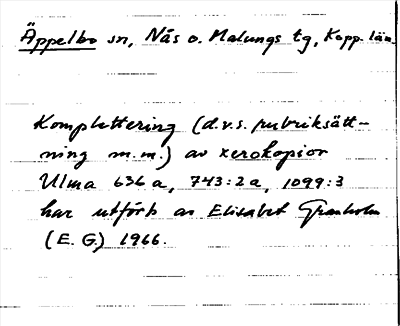 Äppelbo sn, Nås o. Malungs tg, Kopp. län.
Komplettering (d.v.s. rubriksätt-
ning m.m.) av xerokopior
Ulma 636 a, 743:2a, 1099:3
har utförts av Elisabet Granholm
(E. G.) 1966.